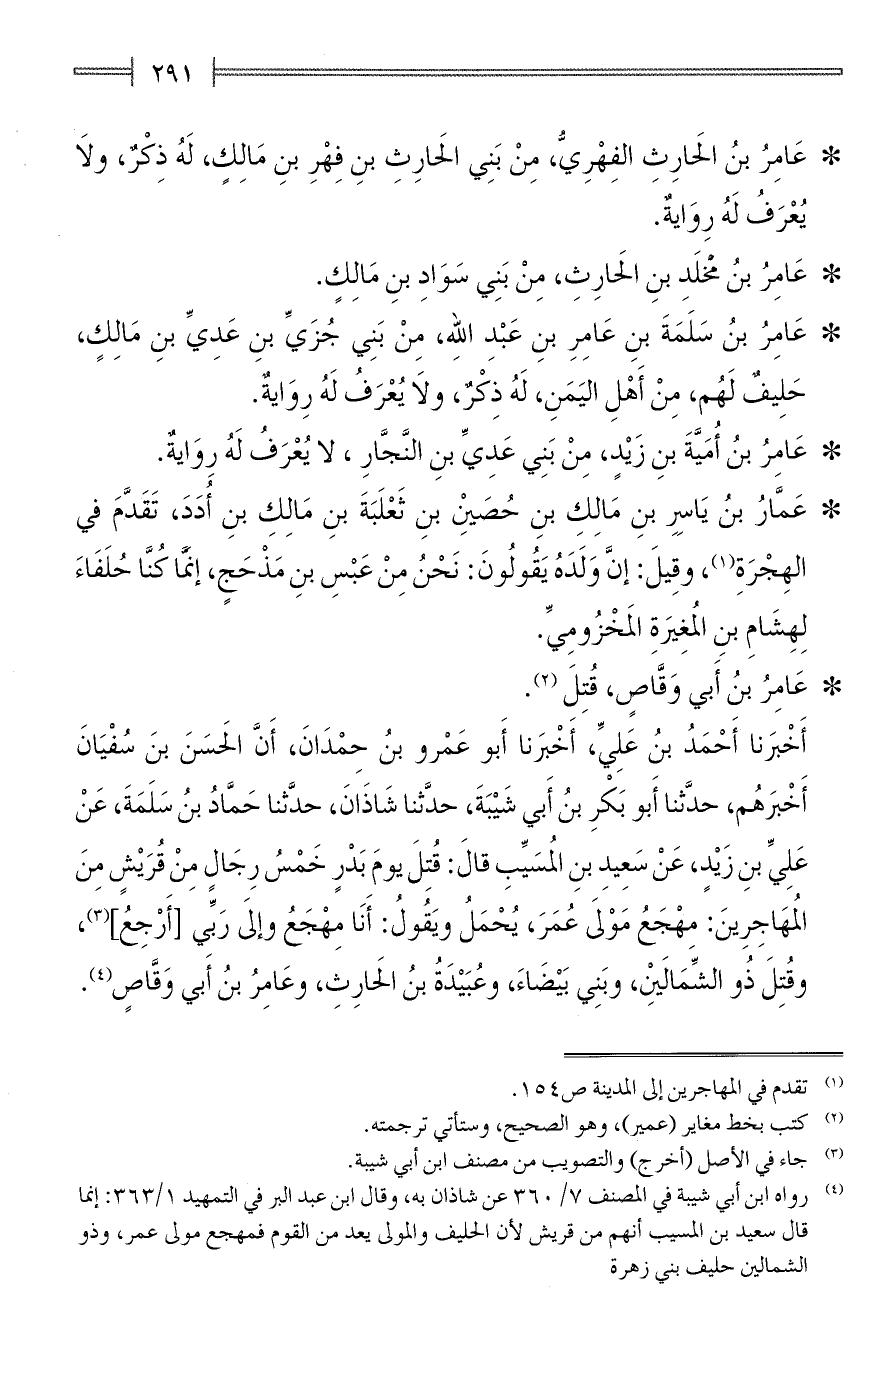 ٢٩١
* عَامِرُ بنُ الحَارِثِ الفِهْرِيُّ، مِنْ بَنِي الحَارِثِ بنِ فِهْرِ بنِ مَالِكٍ، لَهُ ذِكْرٌ، ولَا
يُعْرَفُ لَهُ رِوَايةٌ.
* عَامِرُ بنُ مُخْلَدِ بنِ الحَارِثِ، مِنْ بَنِي سَوَادِ بنِ مَالِكٍ.
* عَامِرُ بنُ سَلَمَةَ بنِ عَامِرِ بنِ عَبْدِ اللهِ، مِنْ بَنِي جُزَيِّ بنِ عَدِيِّ بنِ مَالِكٍ،
حَلِيفٌ لَهُم، مِنْ أَهْلِ اليَمَنِ، لَهُ ذِكْرٌ، ولَا يُعْرَفُ لَهُ رِوَايةٌ.
* عَامِرُ بنُ أُمَيَّةَ بنِ زَيْدٍ، مِنْ بَنِي عَدِيِّ بنِ النَّجَّارِ ، لا يُعْرَفُ لَهُ رِوَايةٌ.
* عَمَّارُ بنُ يَاسِرِ بنِ مَالِكِ بنِ حُصَيْنِ بنِ ثَعْلَبَةَ بنِ مَالِكِ بنِ أُدَدَ، تَقَدَّمَ في
الهِجْرَةِ(١)، وقِيلَ: إنَّ وَلَدَهُ يَقُولُونَ: نَحْنُ مِنْ عَبْسِ بنِ مَذْحَجٍ، إنَّمَا كُنَّا حُلَفَاءَ
لِهِشَامِ بنِ المُغِيرَةِ المَخْزُومِيِّ.
* عَامِرُ بنُ أَبي وَقَّاصٍ، قُتِلَ (٢).
أَخْبَرَنا أَحْمَدُ بنُ عَلِيٍّ، أَخْبَرَنا أبو عَمْرِو بنُ حِمْدَانَ، أَنَّ الحَسَنَ بنَ سُفْيَانَ
أَخْبَرَهُم، حدَّثنا أبو بَكْرِ بنُ أبي شَيْبَةَ، حدَّثنا شَاذَانَ، حدَّثنا حَمَّادُ بنُ سَلَمَةَ، عَنْ
عَلِيِّ بنِ زَيْدٍ، عَنْ سَعِيدِ بنِ المُسَيِّبِ قالَ: قُتِلَ يومَ بَدْرٍ خَمْسُ رِجَالٍ مِنْ قُرَيْشٍ مِنَ
المُهَاجِرِينَ: مِهْجَعُ مَوْلَى عُمَرَ، يُحْمَلُ ويَقُولُ: أَنَا مِهْجَعُ وإلَى رَبِّي [أَرْجِعُ](٣)،
وقُتِلَ ذُو الشِّمَالَيْنِ، وبَنِي بَيْضَاءَ، وعُبَيْدَةُ بنُ الحَارِثِ، وعَامِرُ بنُ أَبي وَقَّاصٍ(٤).
(١) تقدم في المهاجرين إلى المدينة ص١٥٤.
(٢) كتب بخط مغاير (عمير)، وهو الصحيح، وستأتي ترجمته.
(٣) جاء في الأصل (أخرج) والتصويب من مصنف ابن أبي شيبة.
(٤) رواه ابن أبي شيبة في المصنف ٧/ ٣٦٠ عن شاذان به، وقال ابن عبد البر في التمهيد ٣٦٣/١: إنما
قال سعيد بن المسيب أنهم من قريش لأن الحليف والمولى يعد من القوم فمهجع مولى عمر، وذو
الشمالين حليف بني زهرة